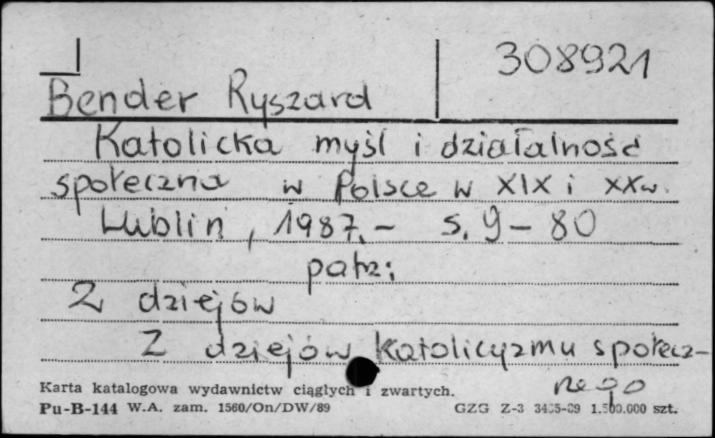 308921
Bender Ryszard
Katolicka myśl i działalność
społeczna w Polsce w XIX i XXw.
Lublin, 1987.- s. 9-80
patrz:
Z dziejów
Z dziejów katolicyzmu społecz-
nego
Karta katalogowa wydawnictw ciągłych i zwartych.
Pu-B-144 W.A. zam. 1560/On/DW/89 GZG Z-3 3435-89 1.500.000 szt.